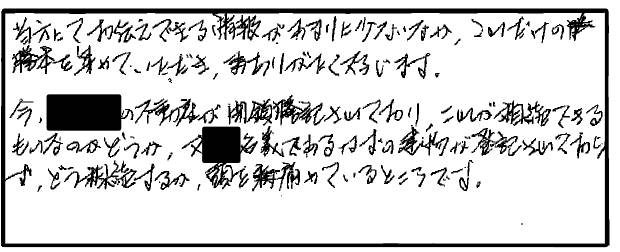 当方にてお伝えできる情報があまりに少ないなか、これだけの
謄本を集めていただき、まことにありがたく存じます。
今、の不動産が閉鎖登記されており、これが相続できる
ものなのかどうか、父名義であるはずの建物が登記されておら
ず、どう相続するか、頭を痛めているところです。